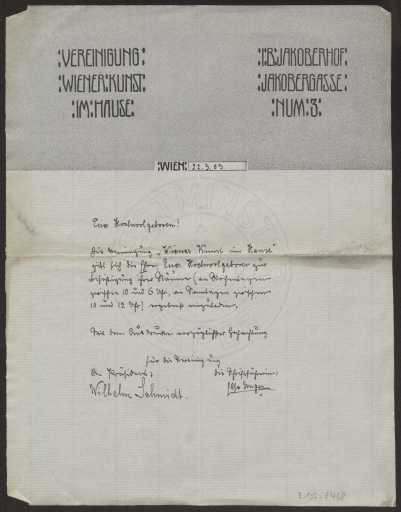 :VEREINIGUNG:
:WIENER:KUNST:
:IM:HAUSE:
:I:B:JAKOBERHOF:
:JAKOBERGASSE:
:NUM:3:
:WIEN: 22.3.03
Euer Hochwohlgeboren!
Die Vereinigung „Wiener Kunst im Hause"
gibt sich die Ehre Euer Hochwohlgeboren zur
Besichtigung ihrer Räume (an Wochentagen
zwischen 10 und 6 Uhr, an Sonntagen zwischen
10 und 12 Uhr) ergebenst einzuladen.
Mit dem Ausdrucke vorzüglichster Hochachtung
für die Vereinigung
Der Präsident: die Schriftführerin:
Wilhelm Schmidt.